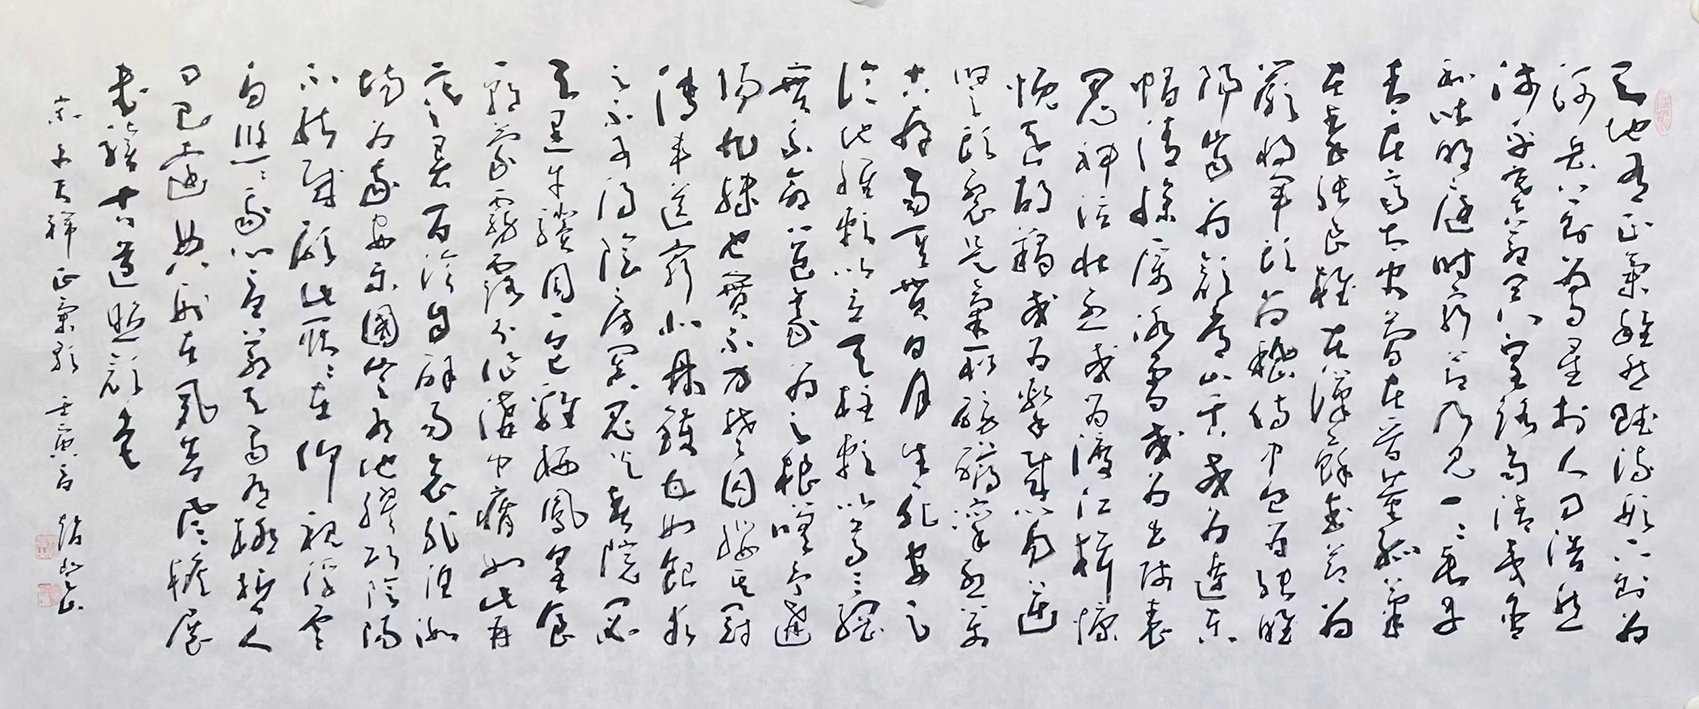 天地有正氣雜然賦流形下則為
河岳上則為日星於人曰浩然
沛乎塞蒼冥皇路當清夷含
和吐明庭時窮節乃見一一垂丹
青在齊太史簡在晉董狐筆
在秦張良椎在漢蘇武節為
嚴將軍頭為嵇侍中血為張睢
陽齒為顏常山舌或為遼東
帽清操厲冰雪或為出師表
鬼神泣壯烈或為渡江楫慷
慨吞胡羯或為擊賊笏逆
豎頭破裂是氣所磅礴凜烈萬
古存當其貫日月生死安足
論地維賴以立天柱賴以尊三綱
實系命道義為之根嗟予遘
陽九隸也實不力楚囚纓其冠
傳車送窮北鼎鑊甘如飴求
之不可得陰房闃鬼火春院閟
天黑牛驥同一皂雞棲鳳凰食
一朝蒙霧露分作溝中瘠如此再
寒暑百沴自辟易哀哉沮洳
場為我安樂國豈有他繆巧陰陽
不能賊顧此耿耿在仰視浮雲
白悠悠我心悲蒼天曷有極哲人
日已遠典刑在夙昔風檐展
書讀古道照顏色
宋文天祥正氣歌 壬寅春